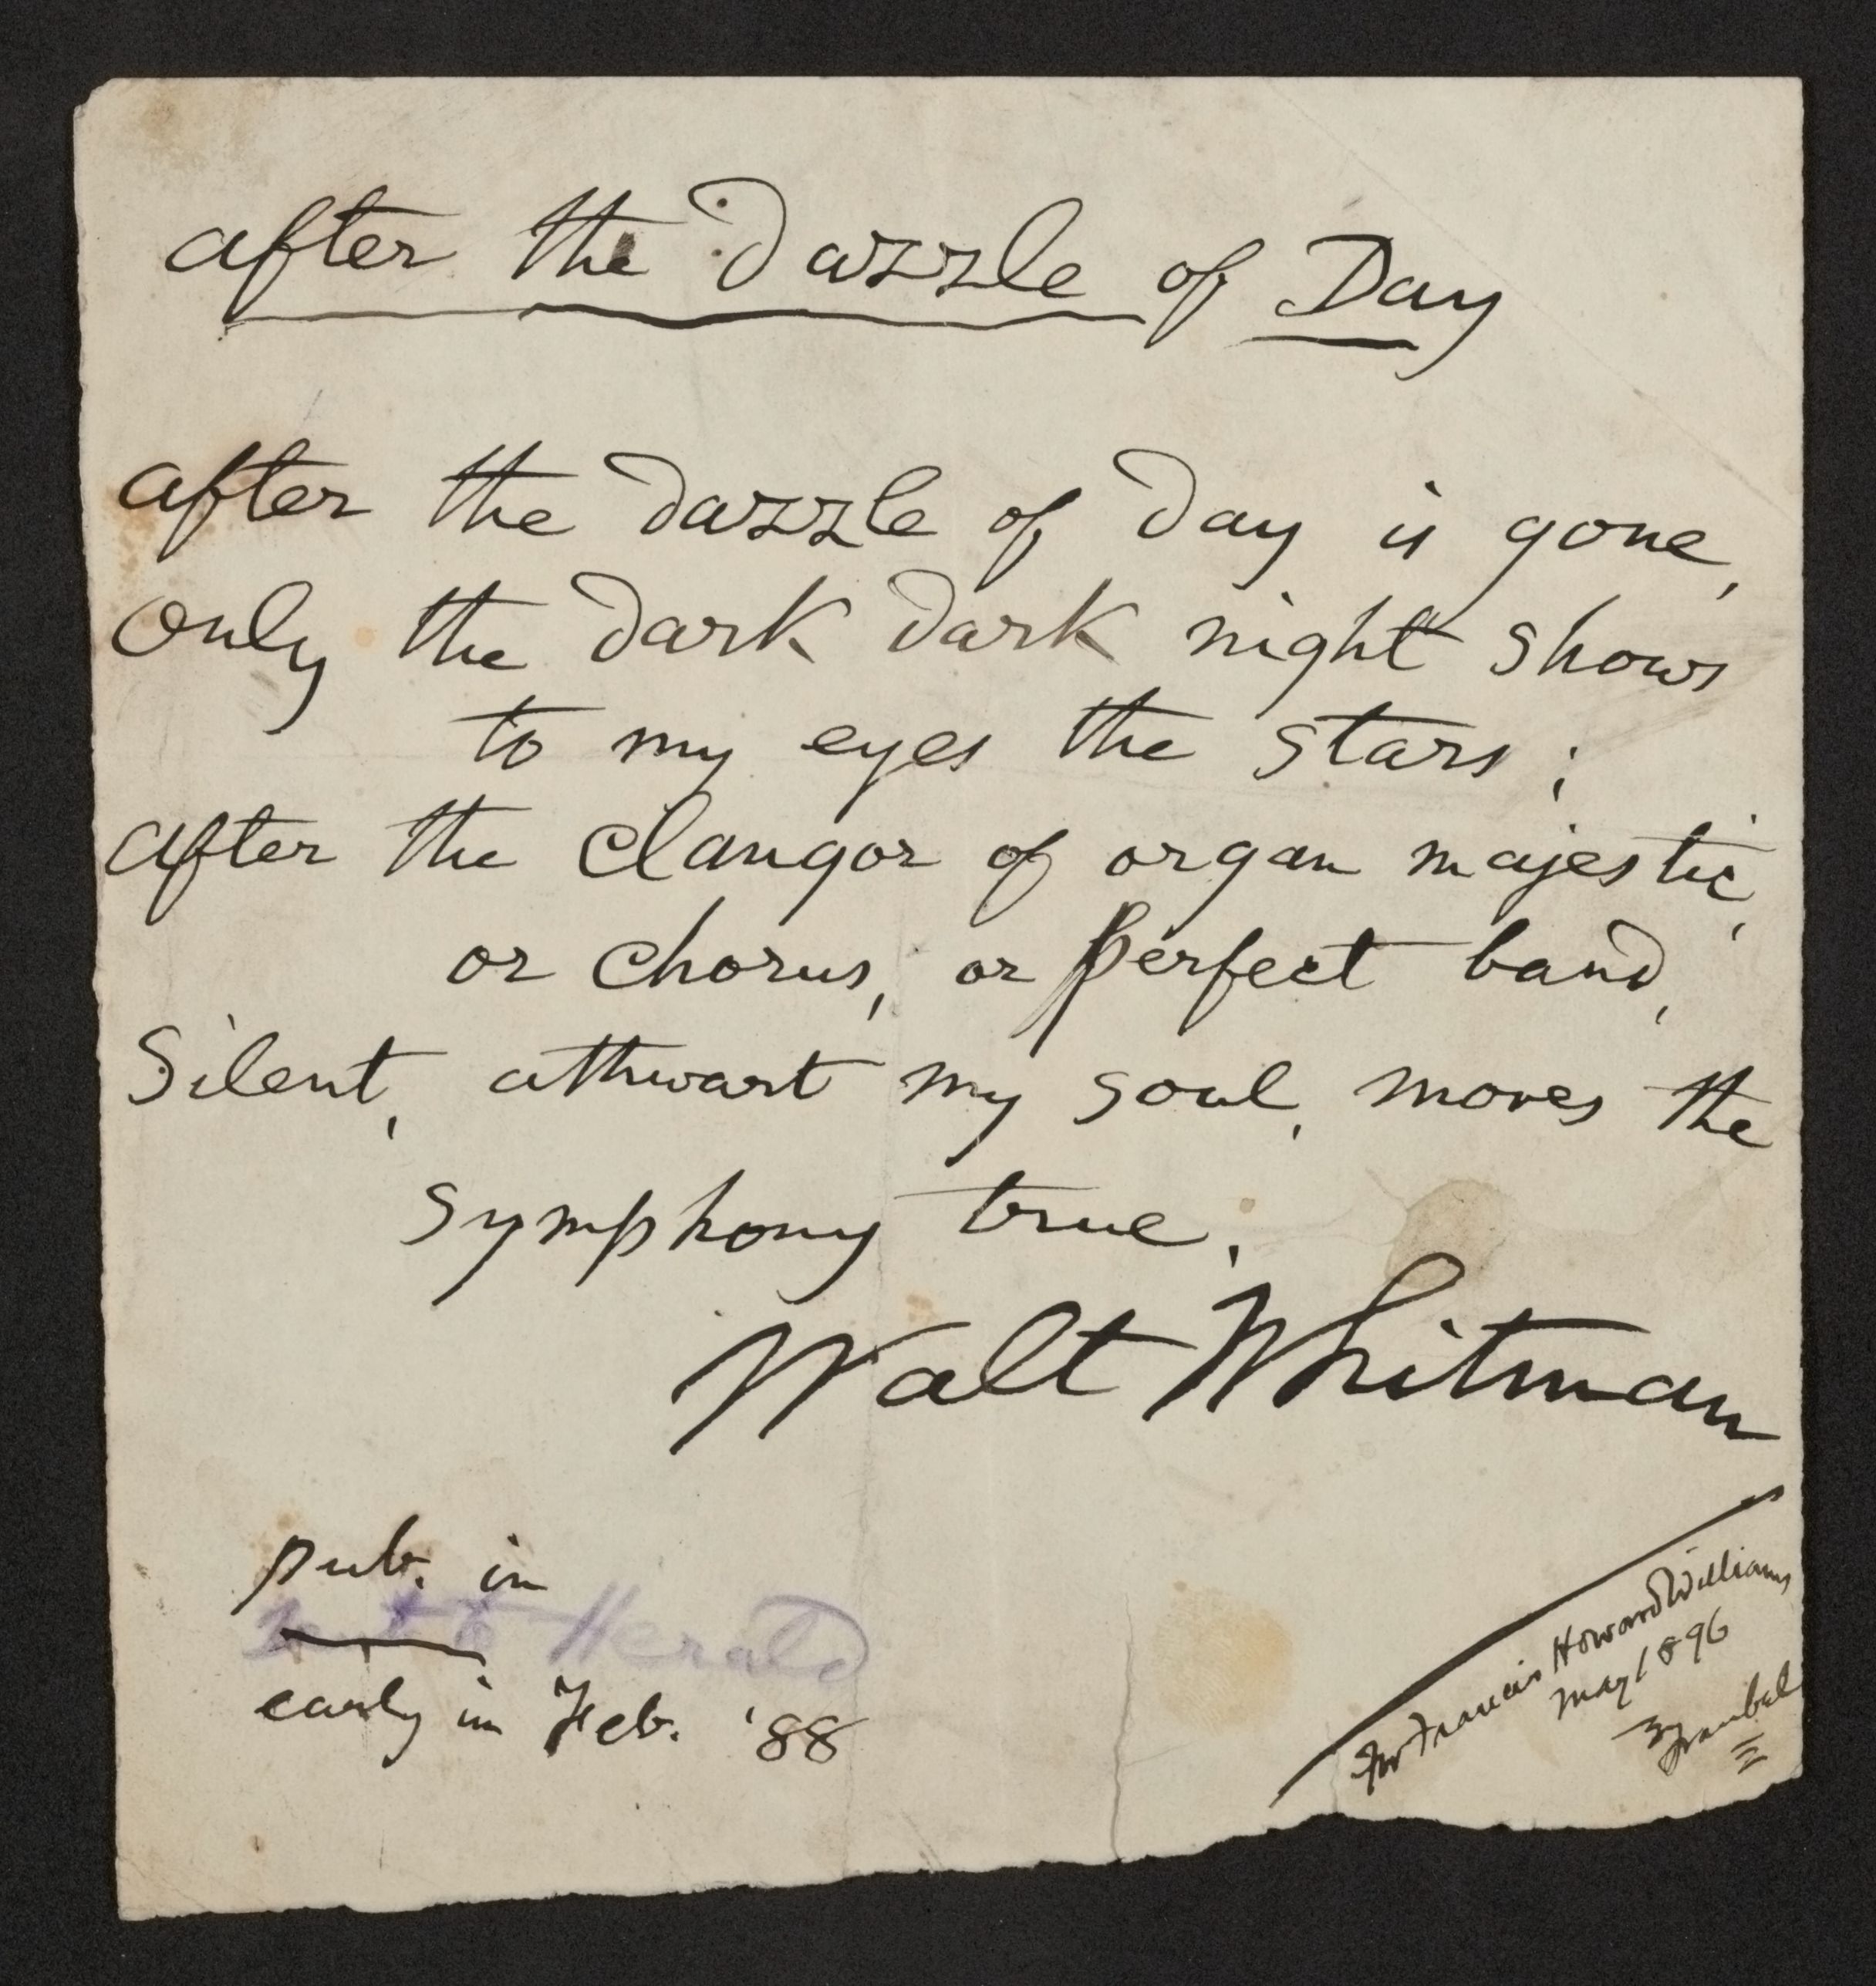 after the Dazzle of Day
after the dazzle of day is gone,
Only the dark dark night shows
to my eyes the stars;
After the clangor of organ majestic,
or chorus, or perfect band,
Silent, athwart my soul, moves the
symphony true.
Walt Whitman
pub. in
sent to Herald
early in Feb. '88
For Francis Howard Williams
May 1896
Traubel